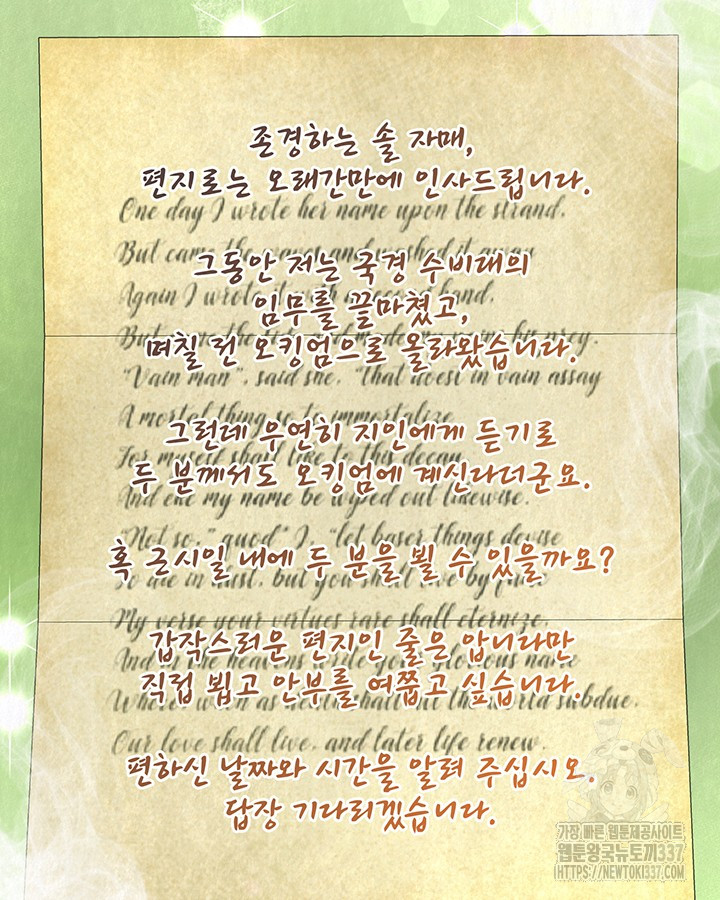 존경하는 솔 자매,
편지로는 오래간만에 인사드립니다.
One day I wrote her name upon the strand,
But came the waves and washed it away
그동안 저는 국경 수비대의
Again I wrote it with a second hand,
임무를 끝마쳤고,
But came the tide, and made my pains his prey.
며칠 전 오킹엄으로 올라왔습니다.
"Vain man", said she, "that doest in vain assay
A mortal thing so to immortalize
그런데 우연히 지인에게 듣기로
For myself shall like to this decay
두 분께서도 오킹엄에 계신다더군요.
And eke my name be wyped out likewise.
"Not so," quod I, "let baser things devise
혹 근시일 내에 두 분을 뵐 수 있을까요?
To die in dust, but you shall live by fame
My verse your virtues rare shall eternize,
갑작스러운 편지인 줄은 압니다만
And in the heavens write your glorious name
직접 뵙고 안부를 여쭙고 싶습니다.
Where when as death shall all the world subdue,
Our love shall live, and later life renew.
편하신 날짜와 시간을 알려 주십시오.
답장 기다리겠습니다.
가장 빠른 웹툰제공사이트
웹툰왕국뉴토끼337
HTTPS://NEWTOKI337.COM